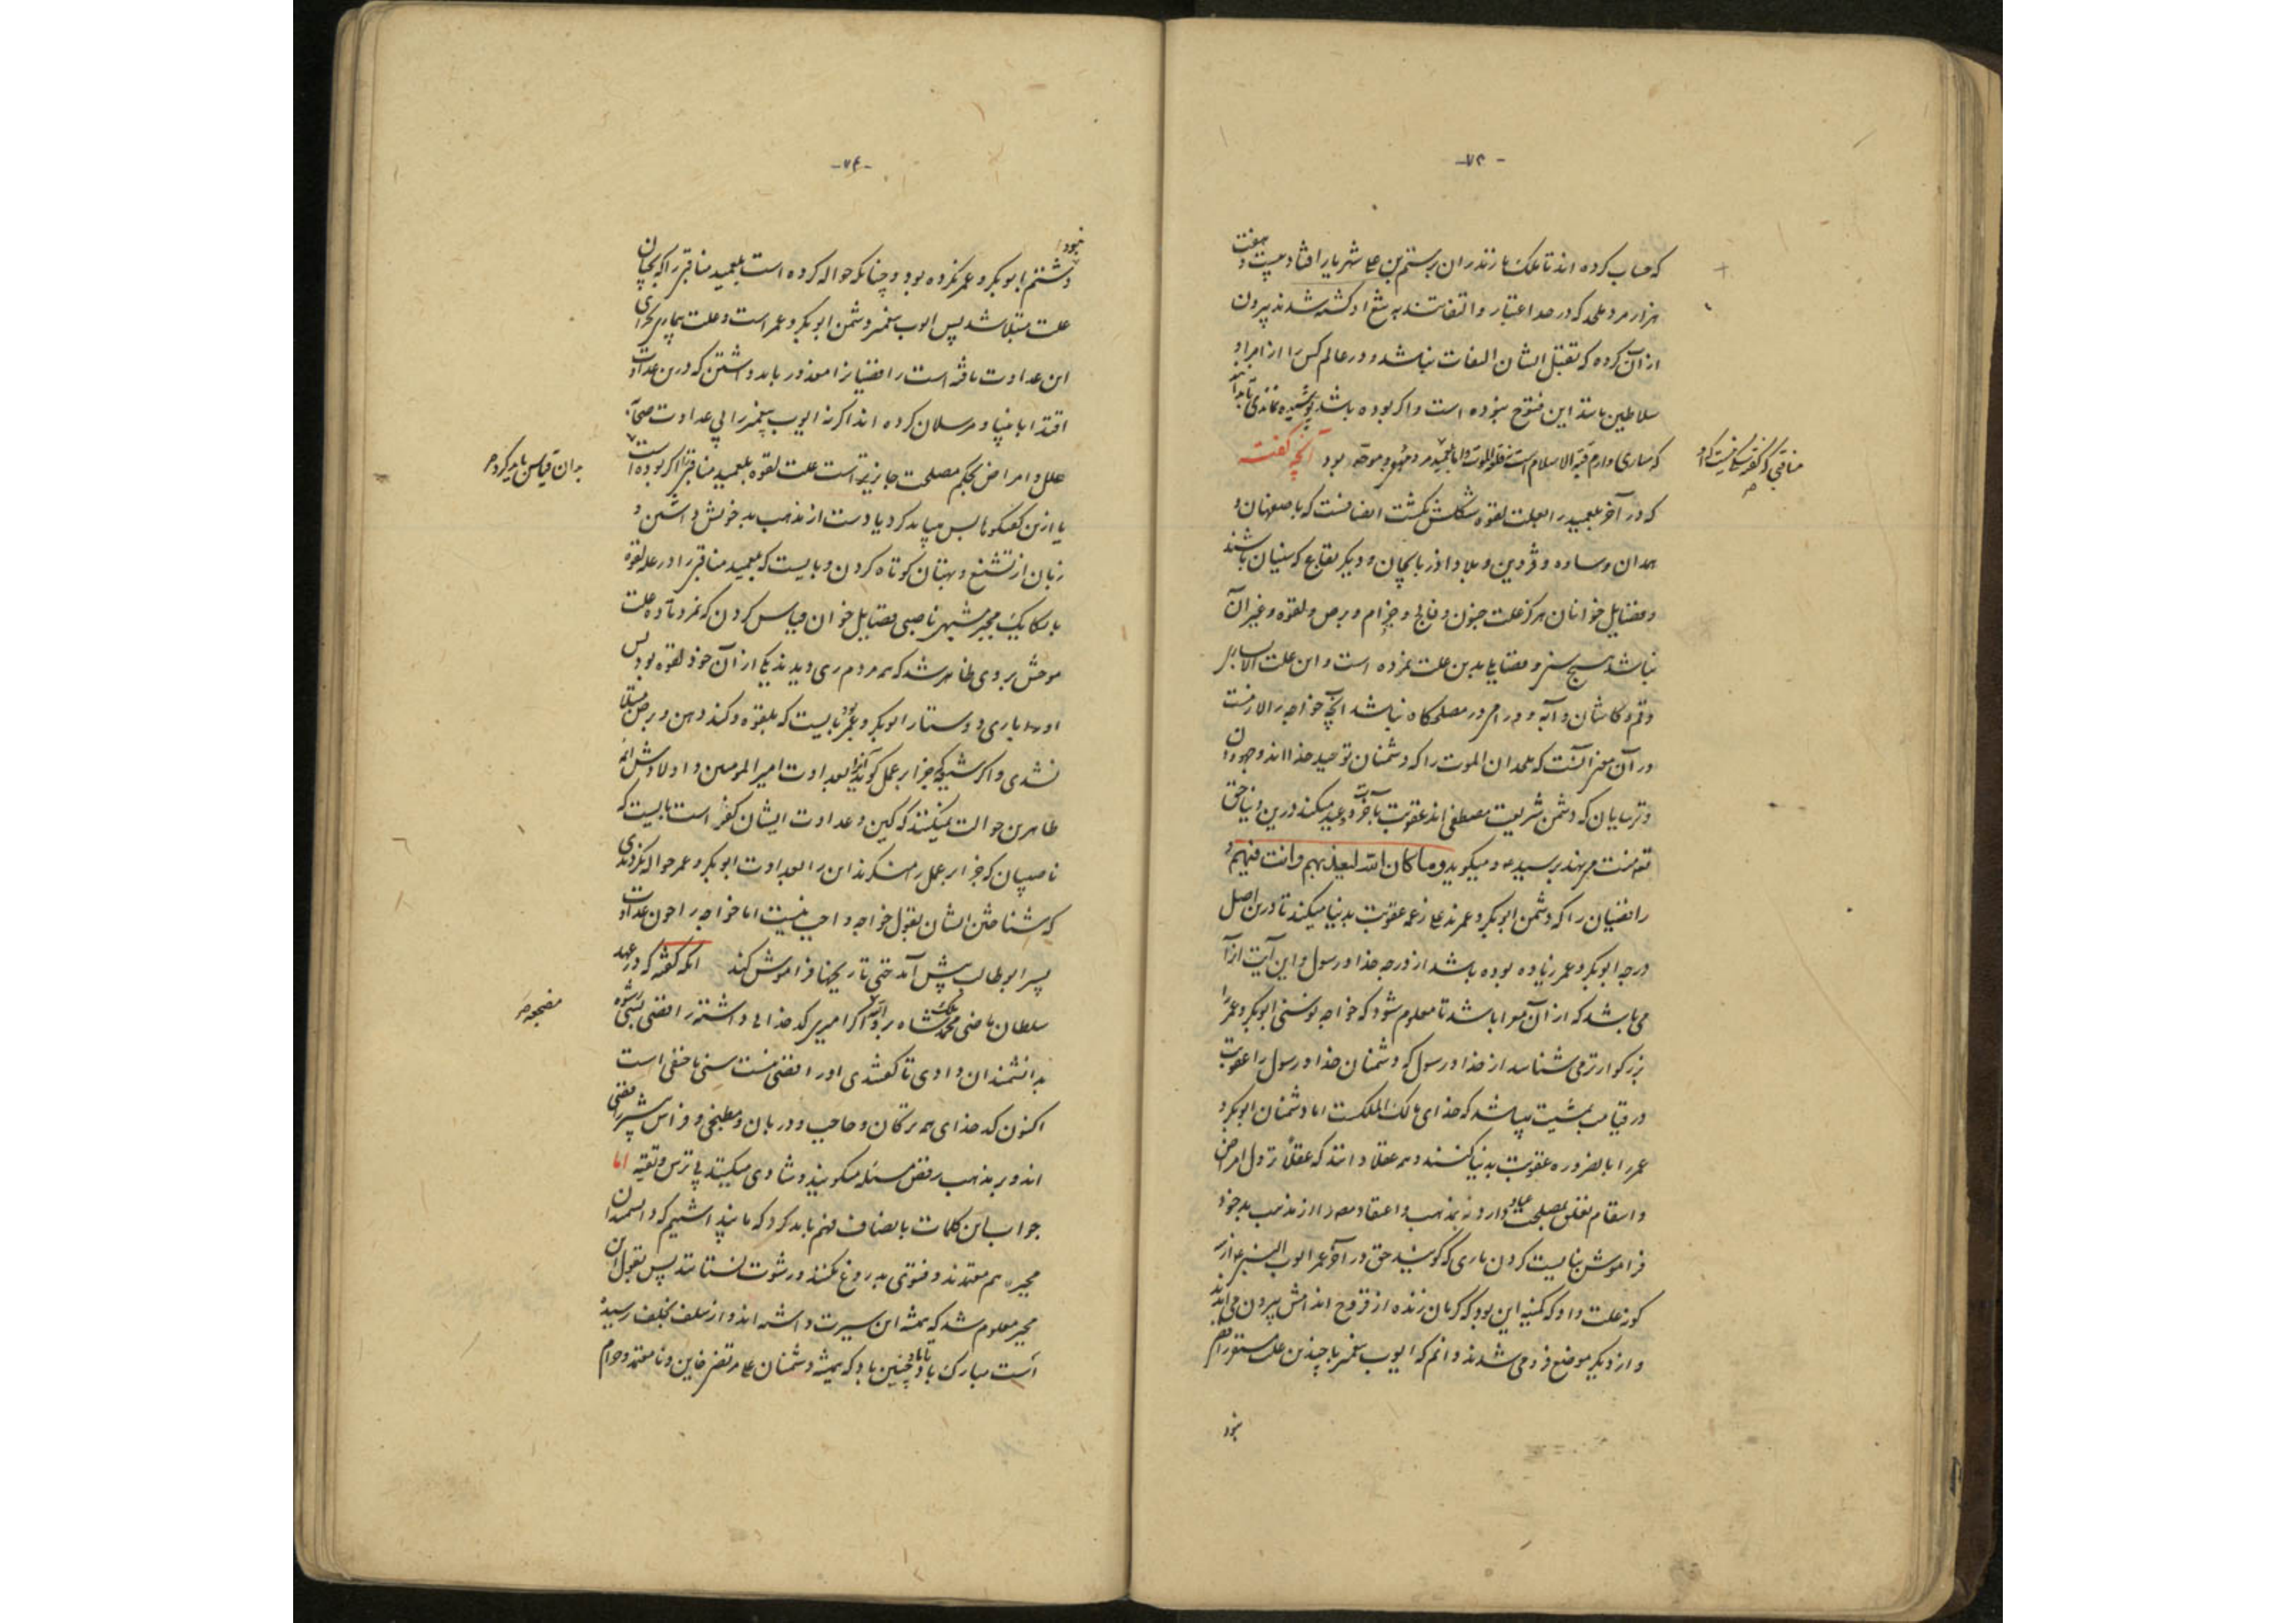 -۷۳-
که حساب کرده اند تا ملک مازندران رستم بن علی شهریار افتاد بیست و هفت
هزار مرد ملحد که در صد اعتبار و التفاتند به تیغ او کشته شدند بیرون
از آن کرده که بقتل ایشان التفات نباشد و در عالم کس را از امرا و
سلاطین مانند این فتوح نبوده است و اگر بوده باشد پوشیده نماندی
که ساری و ارم قبة الاسلام است نه قلعه الموت و اما بلعمید مرد و موحد بود آنچه گفته
منافی که
که در آخر بلعمید را بعلت لقوه شکلش بگشت انصاف نیست که باصفهان و
همدان و ساوه و قزوین و بلاد اذربایجان و دیگر بقاع که سنیان باشند
و فضایل خوانان هرگز علت جنون و فالج و جزام و برص و لقوه و غیر آن
نباشد هیچ سنی و فضایلی بدین علت نمرده است و این علت الا بساری
و قم و کاشان و آبه و ورامین در مصلحگاه نباشد آنچه خواجه را لازمست
در آن معنی آنست که ملحدان الموت را که دشمنان توحید خدا اند و جهودان
و ترسایان که دشمن شریعت مصطفی اند عقوبت بآخرت وعید میکند درین دنیا حق
تعه منت می نهد بر سید ع و میگوید وما کان الله لیعذبهم وانت فیهم و
رافضیان را که دشمن ابوبکر و عمرند علی زعمه عقوبت بدنیا میکند تا درین اصل
درجه ابوبکر و عمر زیاده بوده باشد از درجه خدا و رسول و این آیت از آن
می باشد که از آن معرا باشد تا معلوم شود که خواجه نوسنی ابوبکر و عمر را
بزرگوارتر می شناسد از خدا و رسول که دشمنان خدا و رسول را عقوبت
در قیامت بمشیت باشد که خدای مالک الملکست اما دشمنان ابوبکر و
عمر را بالضروره عقوبت بدنیا کنند و همه عقلا دانند که عقلا نزول امراض
و اسقام تعلق بمصلحت عباد دارد نه بمذهب و اعتقاد از مذهب بد خود
فراموش نبایست کردن باری که گویند حق در آخر عمر ایوب النبی
گونه علت داد که کمینه این بود که کرمان زنده از قروح اندامش بیرون می آمدند
و از دیگر موضع فرو می شدند و دانم که ایوب پیغمبر با چندین علت
نبود
-۷۴-
نبود
و شتم ابوبکر و عمر نکرده بود و چنانکه حواله کرده است بلعمید مناقبی را که بجان
علت مبتلا شد پس ایوب پیغمبر دشمن ابوبکر و عمر است و علت بیماری بجزای
این عداوت یافته است رافضیان را معذور باید داشتن که درین عداوت
اقتدا بانبیا و مرسلان کرده اند اگر نه ایوب پیغمبر را بی عداوت صحابه
علل و امراض بحکم مصلحت جایز است علت لقوه بلعمید مناقبی را اگر بوده است
بدان قیاس باید کرد
یا ازین گفتگو مالیس بباید کرد یا دست از مذهب بد خویش داشتن و
زبان از تشنیع و بهتان کوتاه کردن و بایست که بلعمید مناقبی را در علت لقوه
با یک مجبر مشبهی ناصبی فضایل خوان قیاس کردن که نمرد تا ده علت
موحش بروی ظاهر شد که همه مردم ری دیدند یکی از آن خود لقوه بود پس
او را باری دوستار ابوبکر و عمر بود نبایست که بلقوه و گند دهن و برص مبتلا
نشدی و اگر شیعه جزا بر عمل گویند آنرا بعداوت امیرالمومنین و اولادش ائمه
طاهرین حوالت میکنند که کین و عداوت ایشان کفر است بایست که
ناصبیان که جزا بر عمل را منکرند این را بعداوت ابوبکر و عمر حواله نکردندی
که شناختن ایشان بقول خواجه واجب نیست اما خواجه را چون عداوت
پسر ابوطالب پیش آمد حتی تاریخها فراموش کند آنکه گفته که در عهد
سلطان ماضی محمد ملکشاه اگر امیری کدخدایی داشتی رافضی بسی رشوه
بدانشمندان دادی تا گفتندی او رافضی نیست سنی یا حنفی است
اکنون کدخدای همه ترکان و حاجب و دربان و مطبخی و فراش بیشتر رافضی
اند و بر مذهب رفض مسئله میگویند و شادی میکنند بی ترس و تقیه اما
جواب این کلمات بانصاف فهم باید کرد که ما پنداشتیم که دانشمندان
مجبره همه معتمدند و فتوی به دروغ نکنند و رشوت نستانند پس بقول این
مجبر معلوم شد که همیشه این سیرت داشته اند و از سلف بخلف رسیده
است مبارک باد و چنین باد که همیشه دشمنان علی مرتضی خاین و نامعتمد و حرام